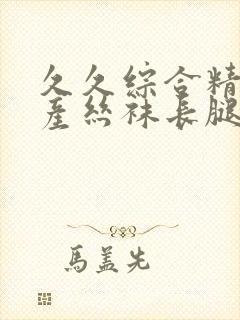 久久綜合精
產絲袜長腿
馬盖先